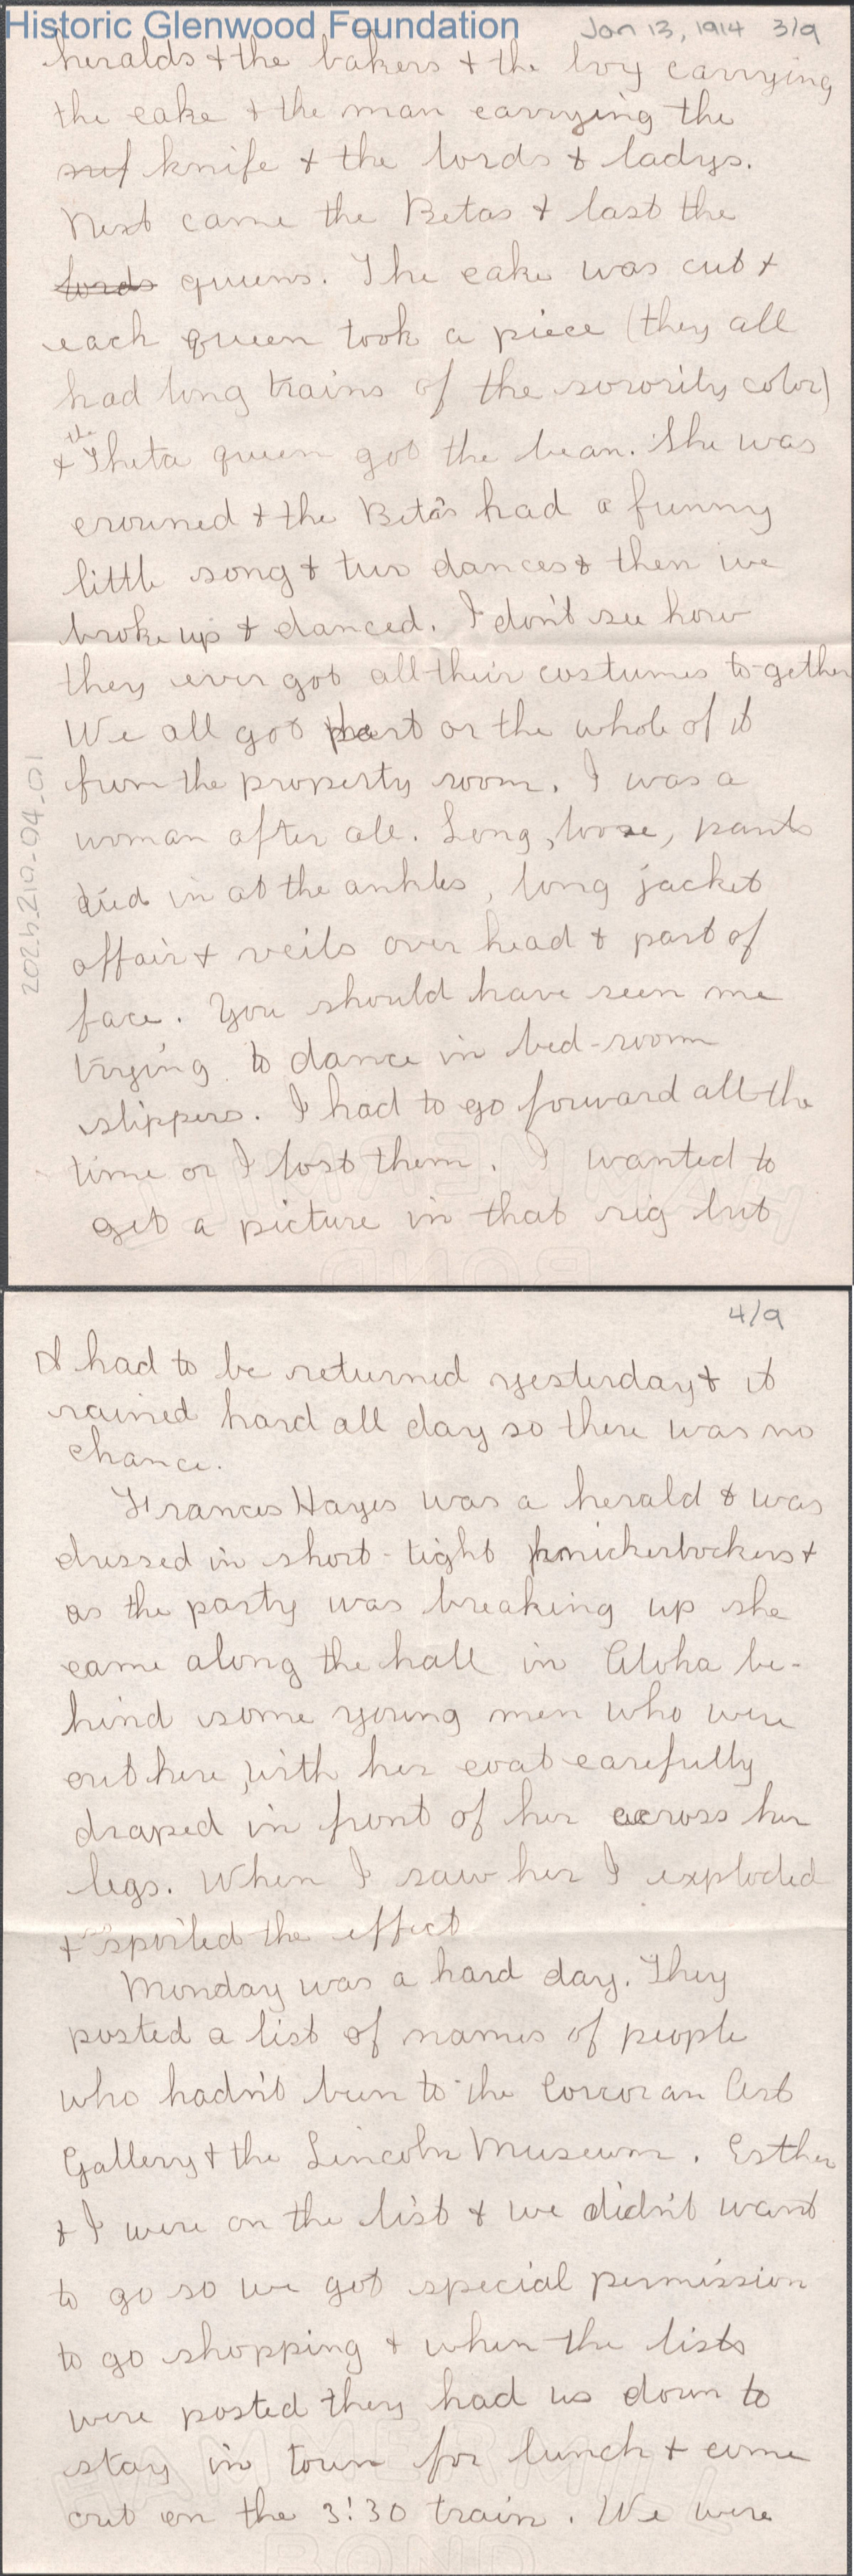 Historic Glenwood Foundation
Jan 13, 1914 3/9
heralds & the bakers & the boy carrying
the cake & the man carrying the
knife & the lords & ladys.
Next came the Betas & last the
lords queens. The cake was cut &
each queen took a piece (they all
had long trains of the sorority color)
& the Theta queen got the bean. She was
crowned & the Beta's had a funny
little song & two dances & then we
broke up & danced. I don't see how
they ever got all their costumes to-gether
We all got part or the whole of it
from the property room. I was a
woman after all. Long, loose, pants
tied in at the ankles, long jacket
affair & veils over head & part of
face. You should have seen me
trying to dance in bed-room
slippers. I had to go forward all the
time or I lost them. I wanted to
get a picture in that rig but
2024.210.04.01
4/9
it had to be returned yesterday & it
rained hard all day so there was no
chance.
Frances Hayes was a herald & was
dressed in short-tight knickerbockers &
as the party was breaking up she
came along the hall in Aloha be-
hind some young men who were
out here, with her coat carefully
draped in front of her across her
legs. When I saw her I exploded
& spoiled the effect
Monday was a hard day. They
posted a list of names of people
who hadn't been to the Corcoran Art
Gallery & the Lincoln Museum. Esther
& I were on the list & we didn't want
to go so we got special permission
to go shopping & when the lists
were posted they had us down to
stay in town for lunch & come
out on the 3:30 train. We were